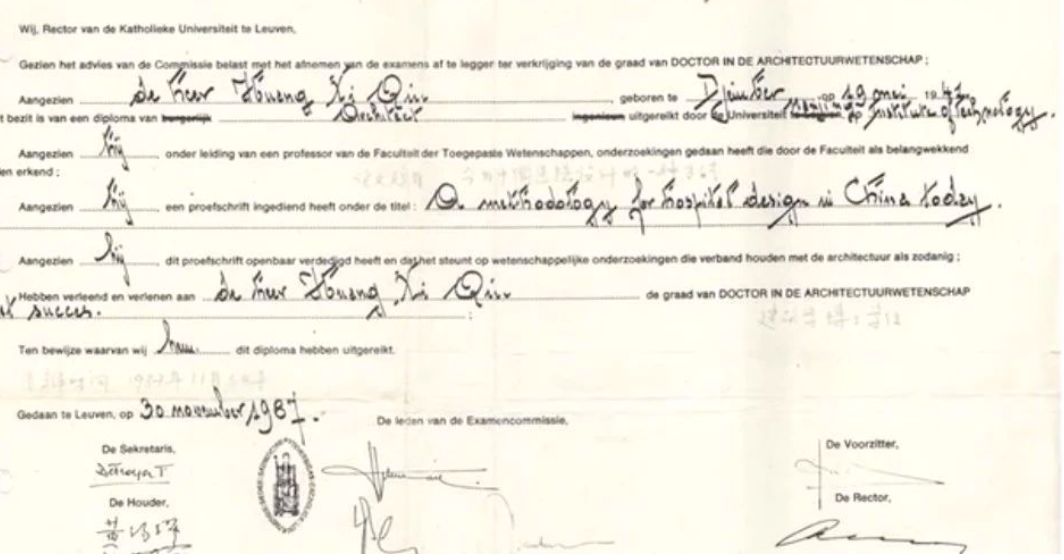 Wij, Rector van de Katholieke Universiteit te Leuven,
Gezien het advies van de Commissie belast met het afnemen van de examens af te legger ter verkrijging van de graad van DOCTOR IN DE ARCHITECTUURWETENSCHAP ;
Aangezien de heer Hueng Xi Qiu geboren te Djember op 29 mei 19
t bezit is van een diploma van burgerlijk Architect ingenieur uitgereikt door de Universiteit Institute of Technology.
Aangezien hij onder leiding van een professor van de Faculteit der Toegepaste Wetenschappen, onderzoekingen gedaan heeft die door de Faculteit als belangwekkend
en erkend ;
Aangezien hij een proefschrift ingediend heeft onder de titel : A methodology for hospital design in China today.
Aangezien hij dit proefschrift openbaar verdedigd heeft en dat het steunt op wetenschappelijke onderzoekingen die verband houden met de architectuur als zodanig ;
Hebben verleend en verlenen aan de heer Hueng Xi Qiu de graad van DOCTOR IN DE ARCHITECTUURWETENSCHAP
succes.
Ten bewijze waarvan wij hem dit diploma hebben uitgereikt.
1987年11月30日
Gedaan te Leuven, op 30 november 1987.
De leden van de Examencommissie,
De Sekretaris,
De Voorzitter,
De Houder,
De Rector,
黄锡璆